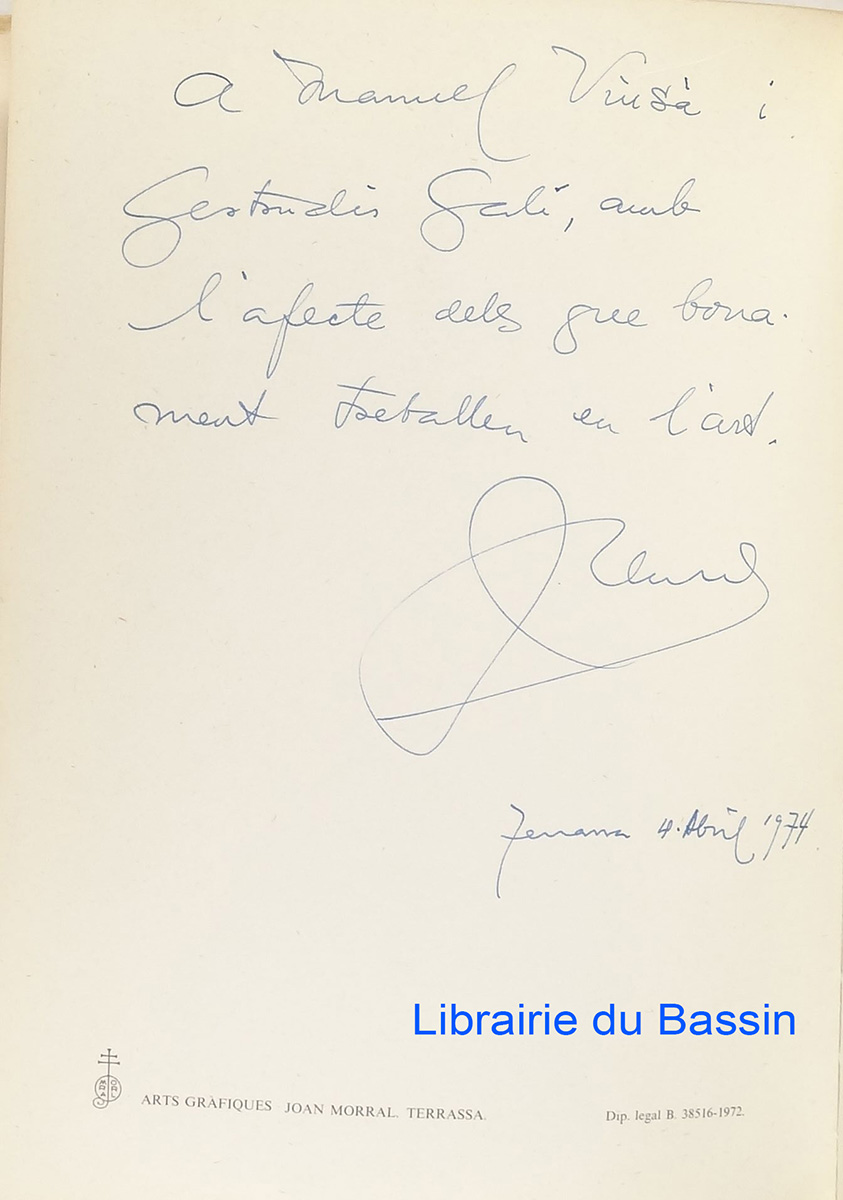 A Manuel Viusà i
Gertrudis Galí, amb
l'afecte dels que bona-
ment treballen en l'art.
Terrassa 4. Abril 1974
Librairie du Bassin
ARTS GRÀFIQUES JOAN MORRAL. TERRASSA.
Dip. legal B. 38516-1972.